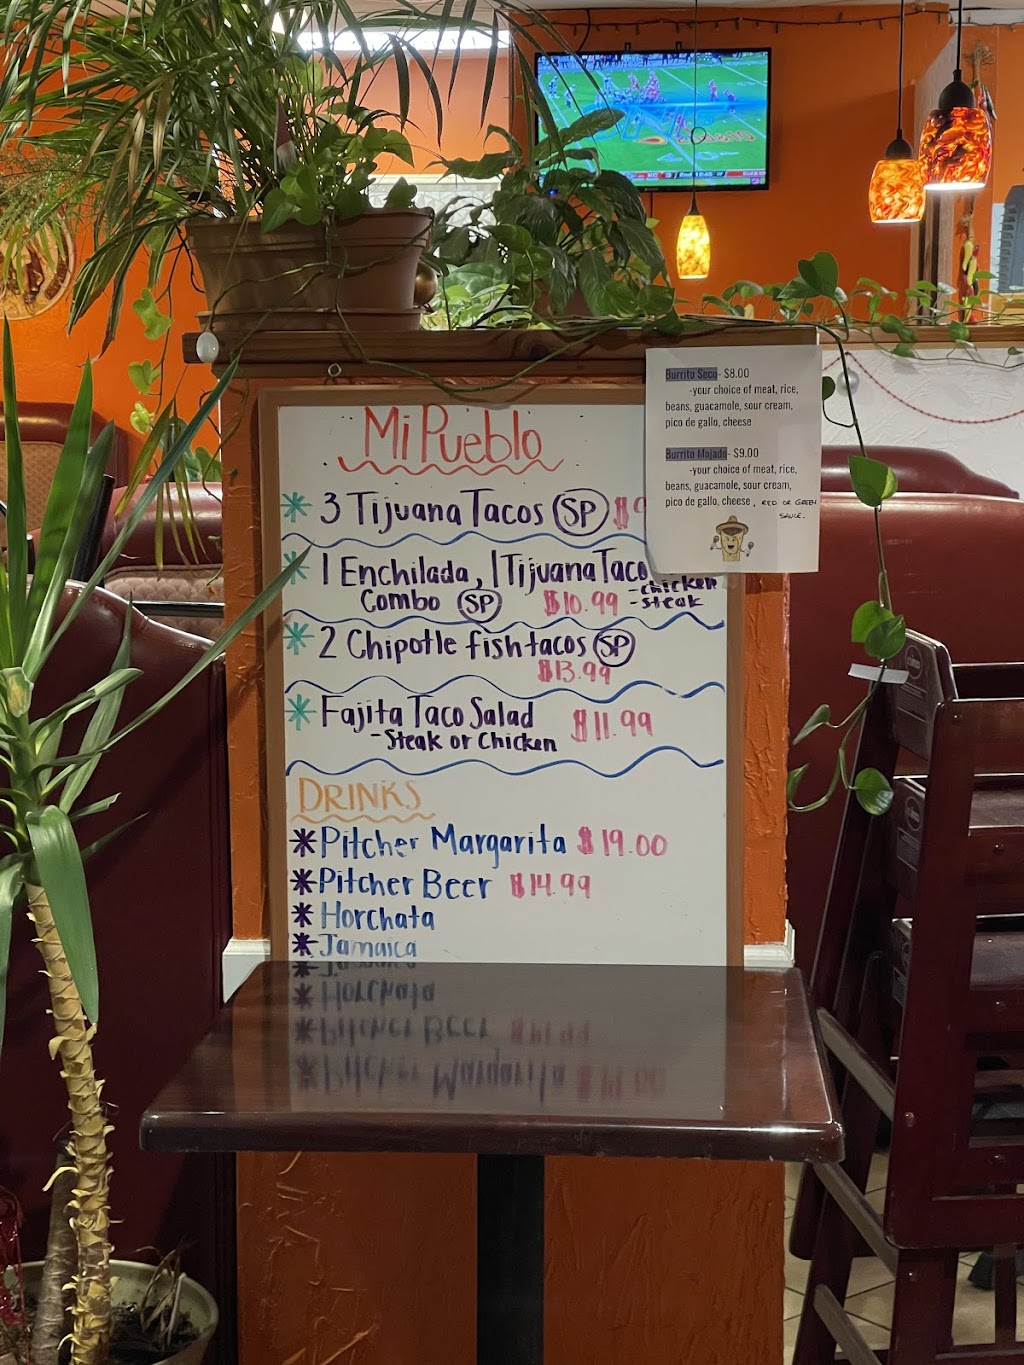 Mi Pueblo
3 Tijuana Tacos SP $9
1 Enchilada, 1 Tijuana Taco
-chicken
Combo SP $10.99 -steak
2 Chipotle fish tacos SP
$13.99
Fajita Taco Salad $11.99
-Steak or Chicken
DRINKS
Pitcher Margarita $19.00
Pitcher Beer $14.99
Horchata
Jamaica
Burrito Seco- $8.00
-your choice of meat, rice,
beans, guacamole, sour cream,
pico de gallo, cheese
Burrito Mojado- $9.00
-your choice of meat, rice,
beans, guacamole, sour cream,
pico de gallo, cheese, RED OR GREEN
SAUCE.